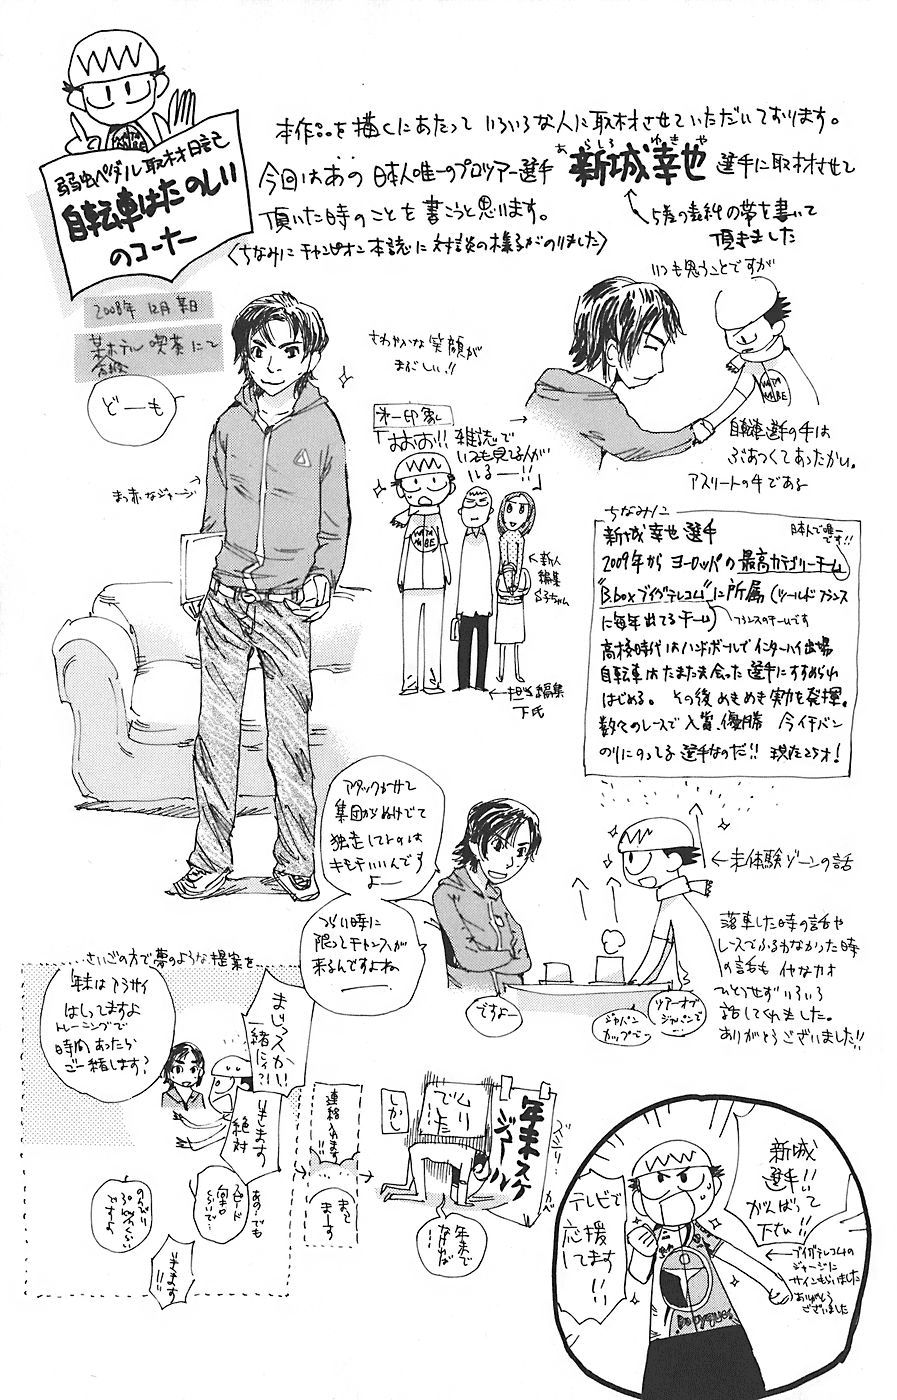 弱虫ペダル取材日記
自転車はたのしい
のコーナー
本作品を描くにあたって いろいろな人に取材させていただいております。
今回はあの 日本人唯一のプロツアー選手 新城幸也 選手に取材させて
あらしろ ゆきや
頂いた時のことを書こうと思います。
〈ちなみに チャンピオン本誌に 対談の様子がのりました〉
5巻の最終の帯を書いて
頂きました
2008年 12月 某日
某ホテル 喫茶にて
どーも
まっ赤なジャージ
さわやかな笑顔が
まぶしい!!
第一印象
「おおお!! 雑誌で
いつも見てる人が
いるー!!」
新人
編集
担当編集
下氏
いつも思うことですが
自転車選手の手は
ぶあつくてあったかい。
アスリートの手である
ちなみに
新城幸也選手
日本人で唯一
です!!
2009年から ヨーロッパの最高カテゴリーチーム
"Bboxブイグテレコム"に所属(ツールドフランス
に毎年出てるチーム)
フランスのチームです
高校時代はハンドボールでインターハイ出場
自転車はたまたま会った選手にすすめられ
はじめる。 その後めきめき実力を発揮。
数々のレースで入賞、優勝 今イチバン
のりにのってる選手なのだ!! 現在25才!
アタックかけて
集団からぬけでて
独走してトのは
キモチいいんです
よー
つらい時に
限ってチャンスが
来るんですよね
ですよー
ジャパン
カップでー
ツアーオブ
ジャパンでー
未体験ゾーンの話
落車した時の話や
レースでふるわなかった時
の話も イヤなカオ
ひとつせず いろいろ
話してくれました。
ありがとうございました!!
さいごの方で夢のような提案を
年末はアラサイ
はしってますよ
トレーニングで
時間あったら
ご一緒します?
まじっスかい
一緒に!?
いきます
絶対
あのでも
スピード
のんびり
30km/hくらい
ですよ
いきます
!!
連絡入れます
!!
まって
まーす
しかし
ムリ
でした
年末スケ
ジュール
年末で
新城
選手!!
がんばって
下さい!!
テレビで
応援
してます
!!
ブイグテレコムの
ジャージに
サインもらいました
ありがとう
ございました